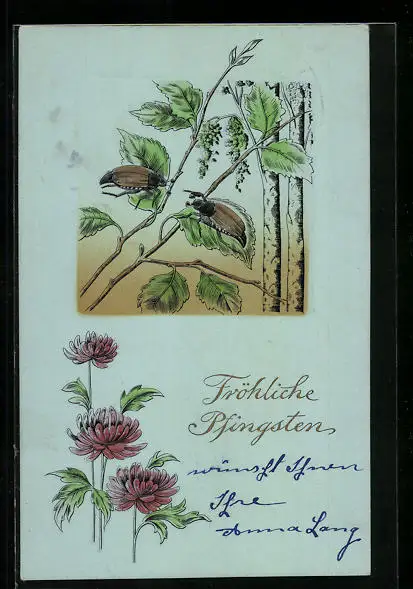 Fröhliche
Pfingsten
wünscht Ihnen
Ihre
Anna Lang